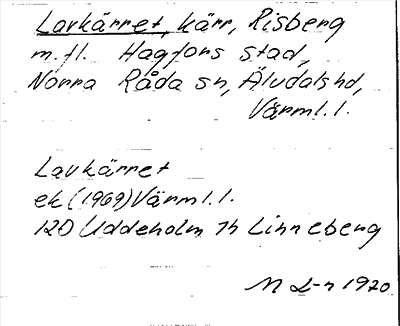 Lavkärret, kärr, Risberg
m. fl. Hagfors stad,
Norra Råda sn, Älvdals hd,
Värml. l.
Lavkärret
ek (1969) Värml. l.
12D Uddeholm 7h Linneberg
M L-n 1970